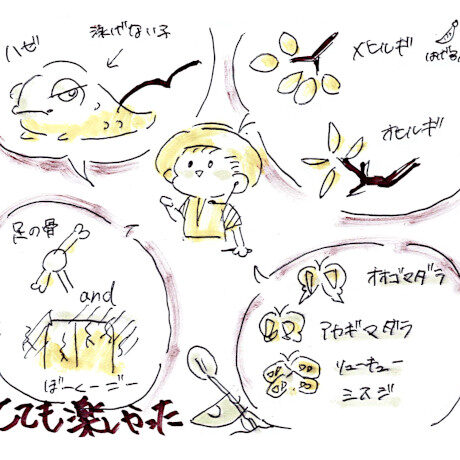 ハゼ
泳げない子
メヒルギ
オヒルギ
足の骨
and
ぼーくーごー
オオゴマダラ
アカギマダラ
リューキュー
ミスジ
とても楽しかった